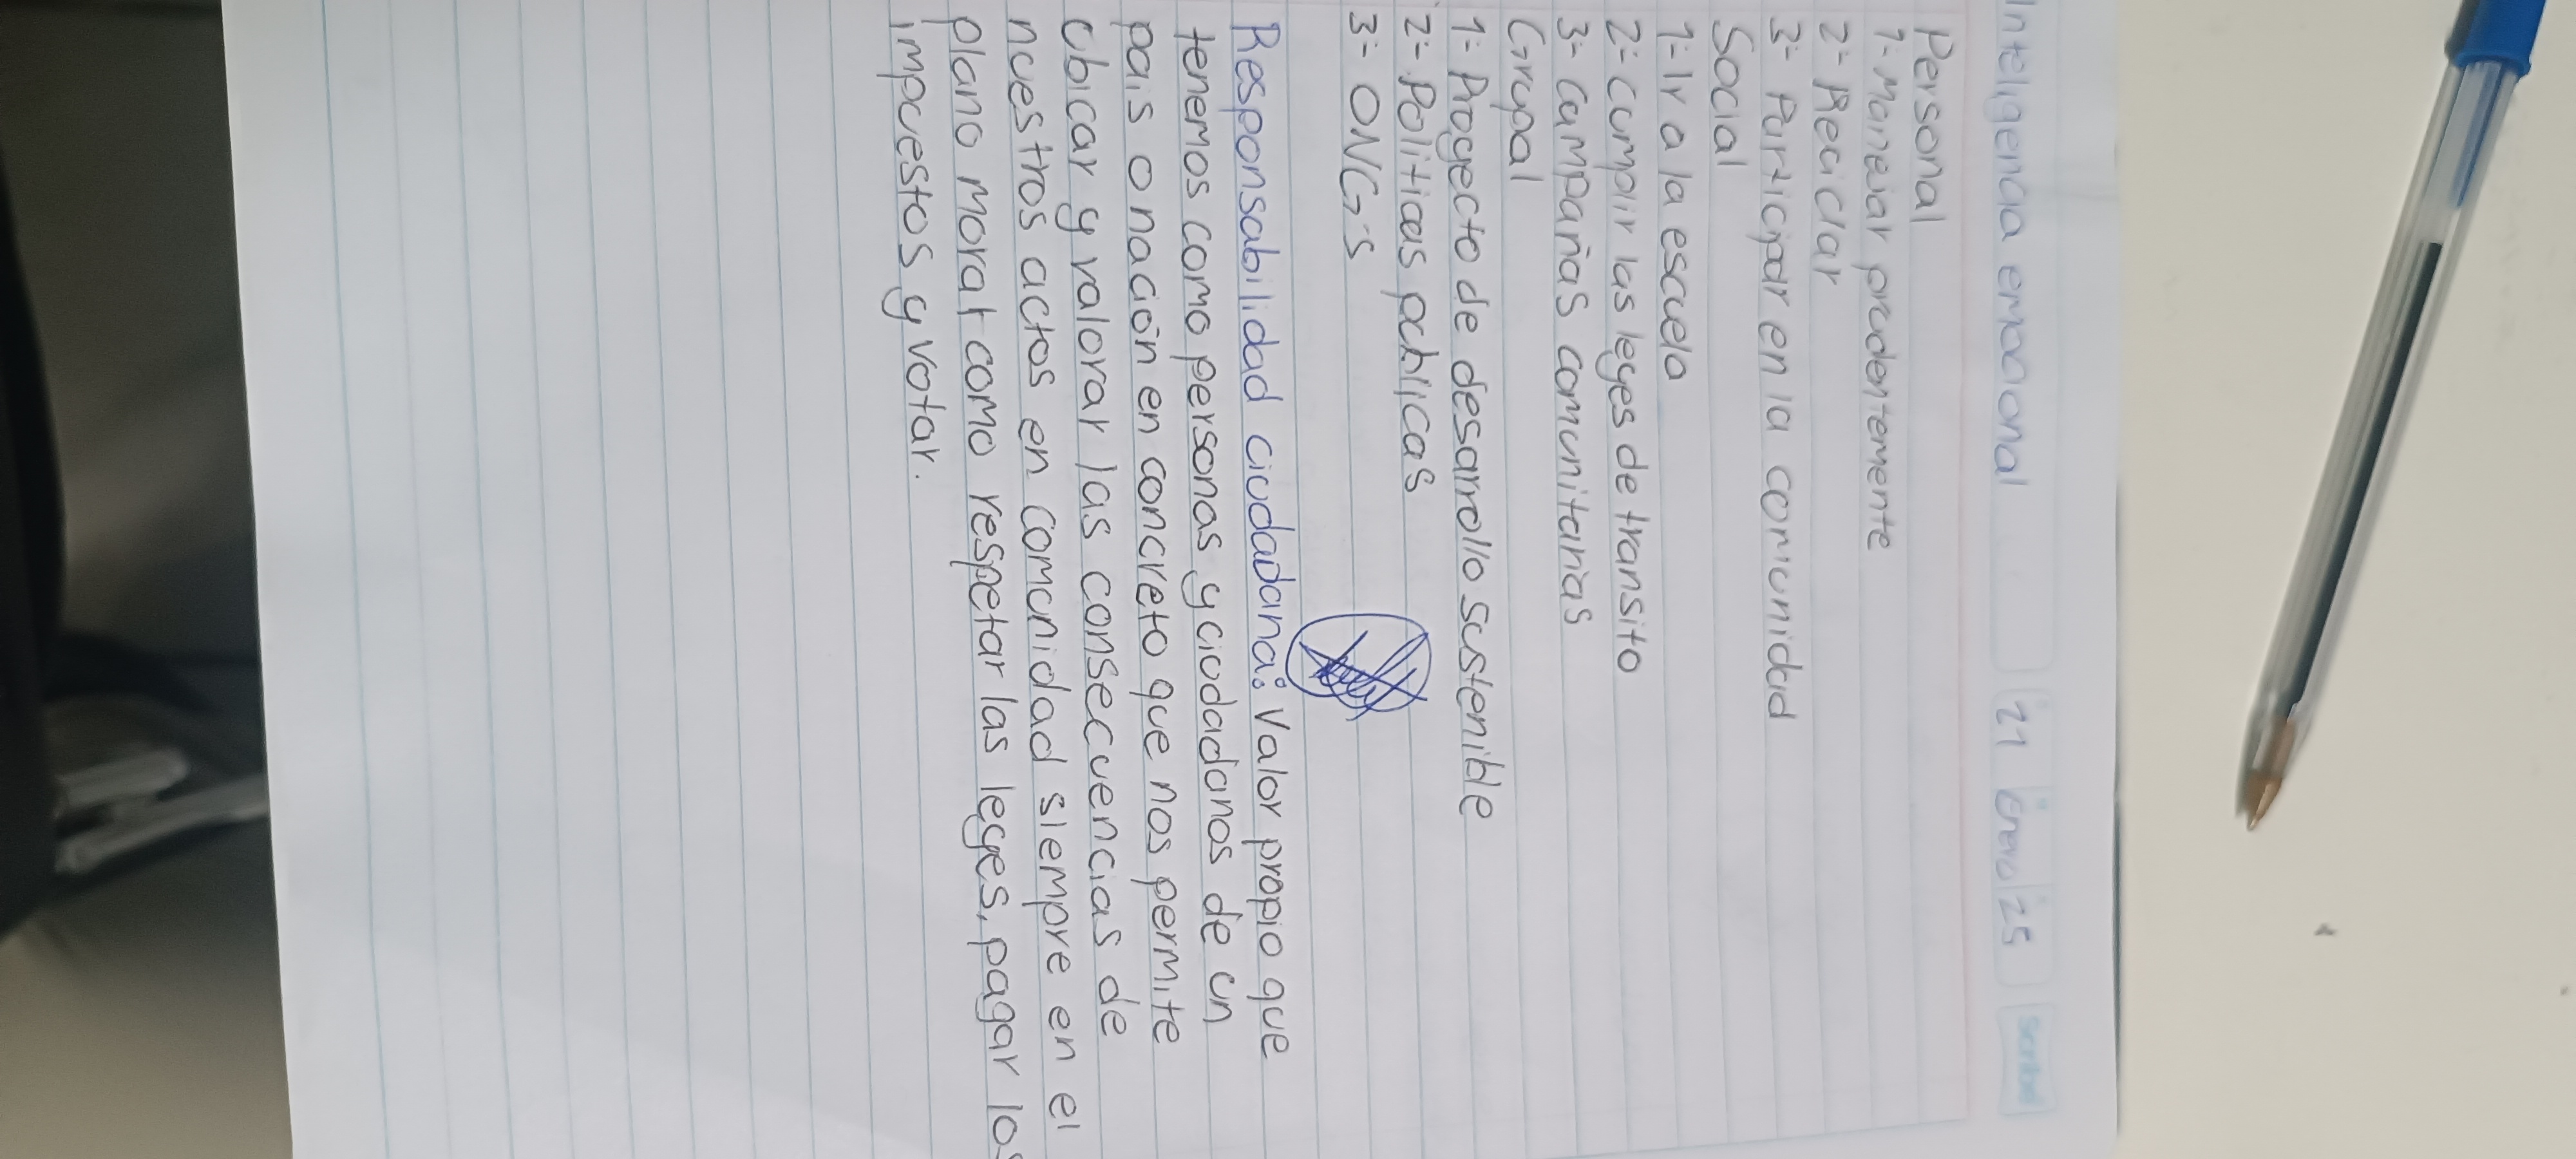 Inteligencia emocional 21 Enero 25 Scribe
Personal
1- Manejar prudentemente
2- Reciclar
3- Participar en la comunidad
Social
1- Ir a la escuela
2- cumplir las leyes de transito
3- campañas comunitarias
Grupal
1- Proyecto de desarrollo sustenible
2- Politicas púclicas
3- ONG'S
Responsabilidad ciudadana: Valor propio que
tenemos como personas y ciudadanos de un
pais o nación en concreto que nos permite
ubicar y valorar las consecuencias de
nuestros actos en comunidad siempre en el
plano moral como respetar las leyes, pagar los
impuestos y votar.